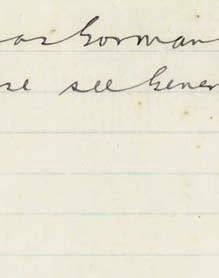 Gorman
see Gener